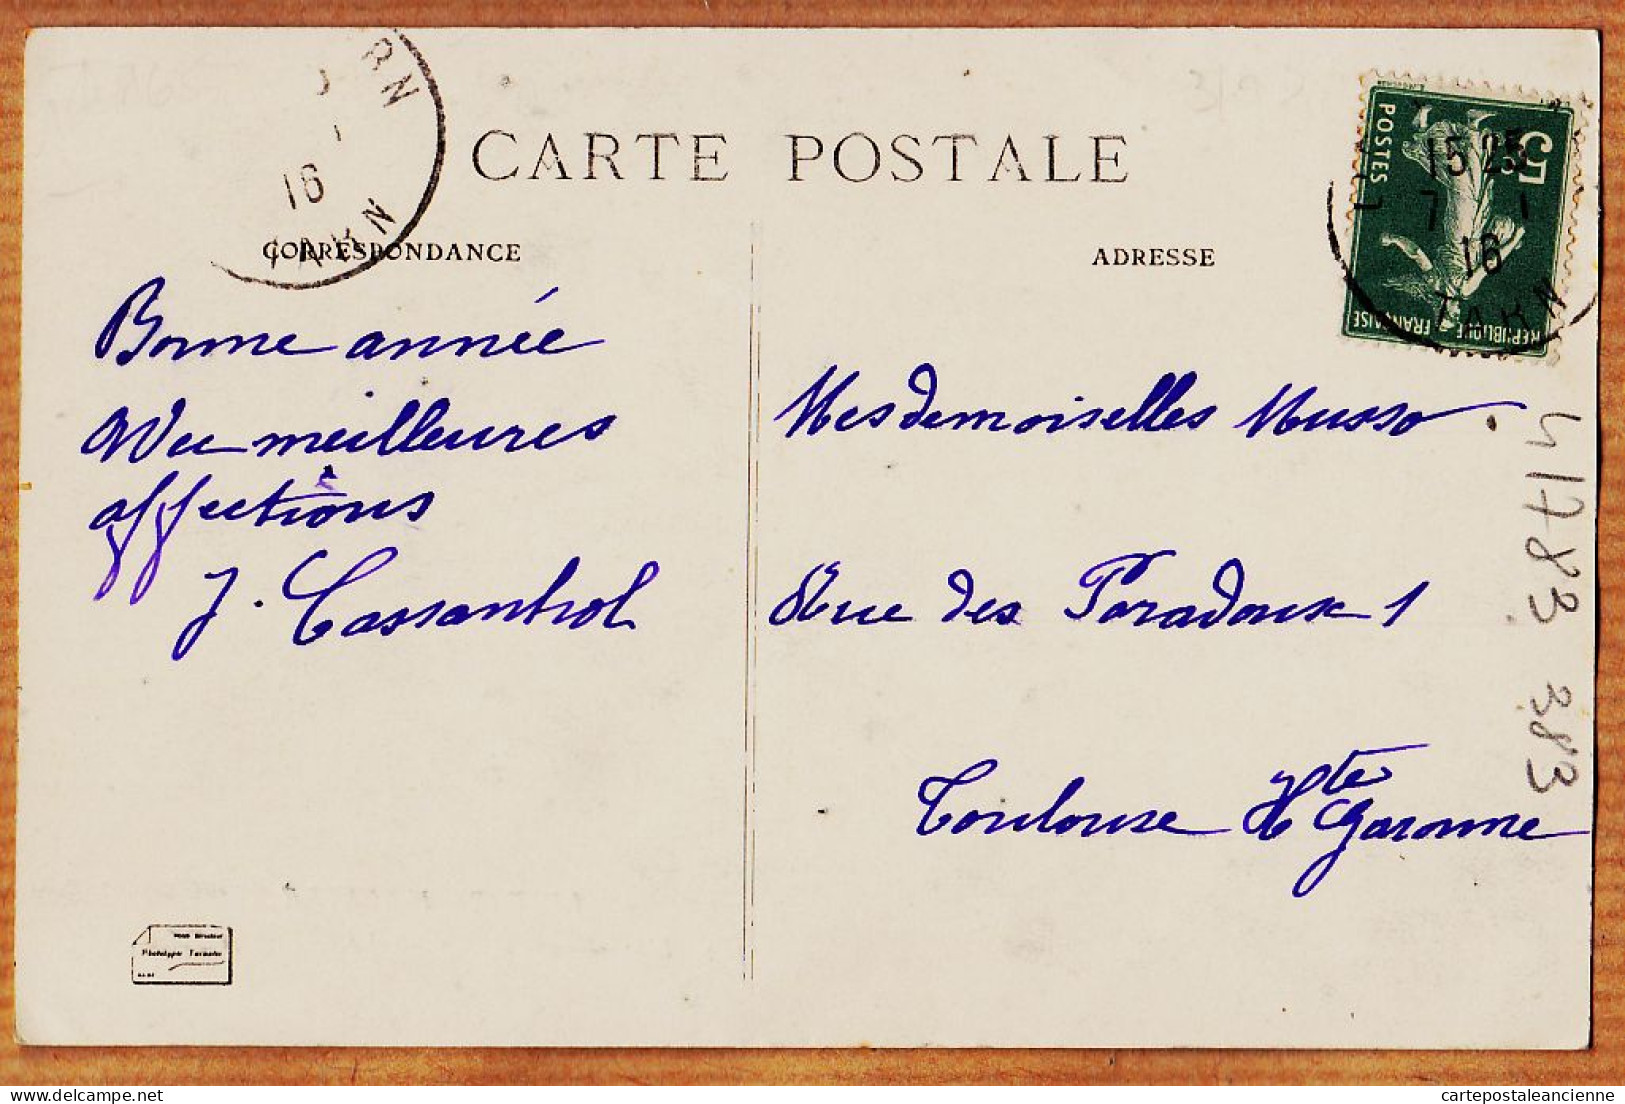 RN
16
TARN
CARTE POSTALE
CORRESPONDANCE
ADRESSE
5c
POSTES
REPUBLIQUE FRANÇAISE
15 25
7 - 1
16
TARN
Bonne année
meilleures
affections
J. Cassanhol
Mesdemoiselles Musso.
Rue des Paradoux 1
Toulouse Hte Garonne
41783 383
Phototypie Tarnaise
delcampe.net
cartepostaleancienne